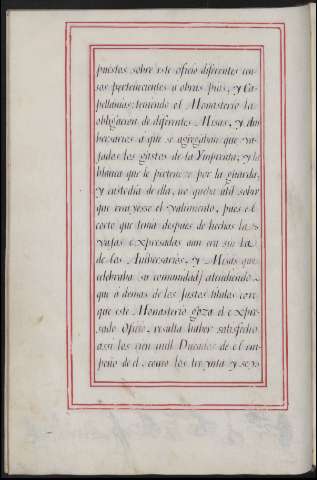 puestos sobre este oficio diferentes cen-
sos perteneciente a obras pias, y Ca-
pellanias; teniendo el Monasterio la
obligacion de diferentes Misas, y Ani-
versarios a que se agregaban que va-
jados los gastos de la Ymprenta, y la
blanca que le pertenece por la guarda,
y custodia de ella, no queda util sobre
que recayesse el valimiento, pues el
corto que tenia despues de hechas las
vajas expresadas aun era sin la
de los Aniversarios, y Misas que
celebraba su comunidad; atendiendo
que â demas de los Justos titulos con
que este Monasterio goza el expre-
sado Oficio, resulta haber satisfecho
assi los cien mill Ducados de el em-
peño de el, como los treynta y seys